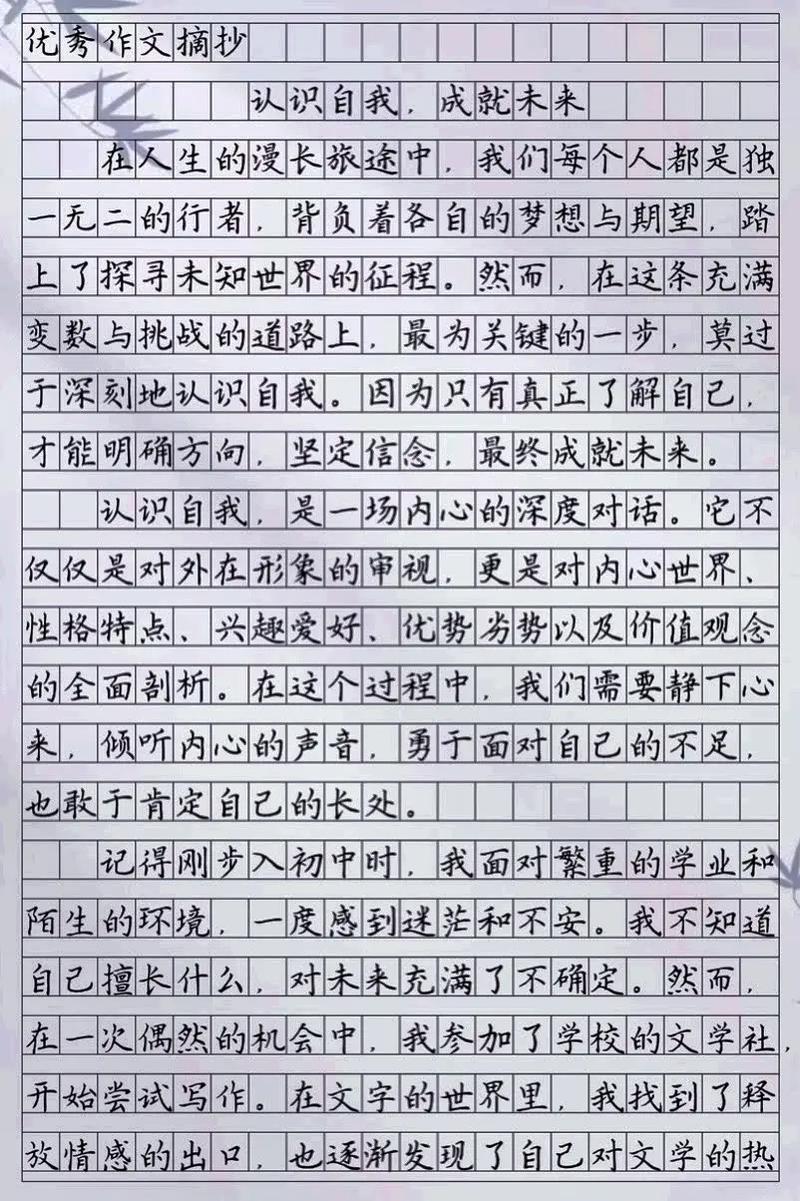 优秀作文摘抄
认识自我，成就未来
在人生的漫长旅途中，我们每个人都是独
一无二的行者，背负着各自的梦想与期望，踏
上了探寻未知世界的征程。然而，在这条充满
变数与挑战的道路上，最为关键的一步，莫过
于深刻地认识自我。因为只有真正了解自己，
才能明确方向，坚定信念，最终成就未来。
认识自我，是一场内心的深度对话。它不
仅仅是对外在形象的审视，更是对内心世界、
性格特点、兴趣爱好、优势劣势以及价值观念
的全面剖析。在这个过程中，我们需要静下心
来，倾听内心的声音，勇于面对自己的不足，
也敢于肯定自己的长处。
记得刚步入初中时，我面对繁重的学业和
陌生的环境，一度感到迷茫和不安。我不知道
自己擅长什么，对未来充满了不确定。然而，
在一次偶然的机会中，我参加了学校的文学社，
开始尝试写作。在文字的世界里，我找到了释
放情感的出口，也逐渐发现了自己对文学的热